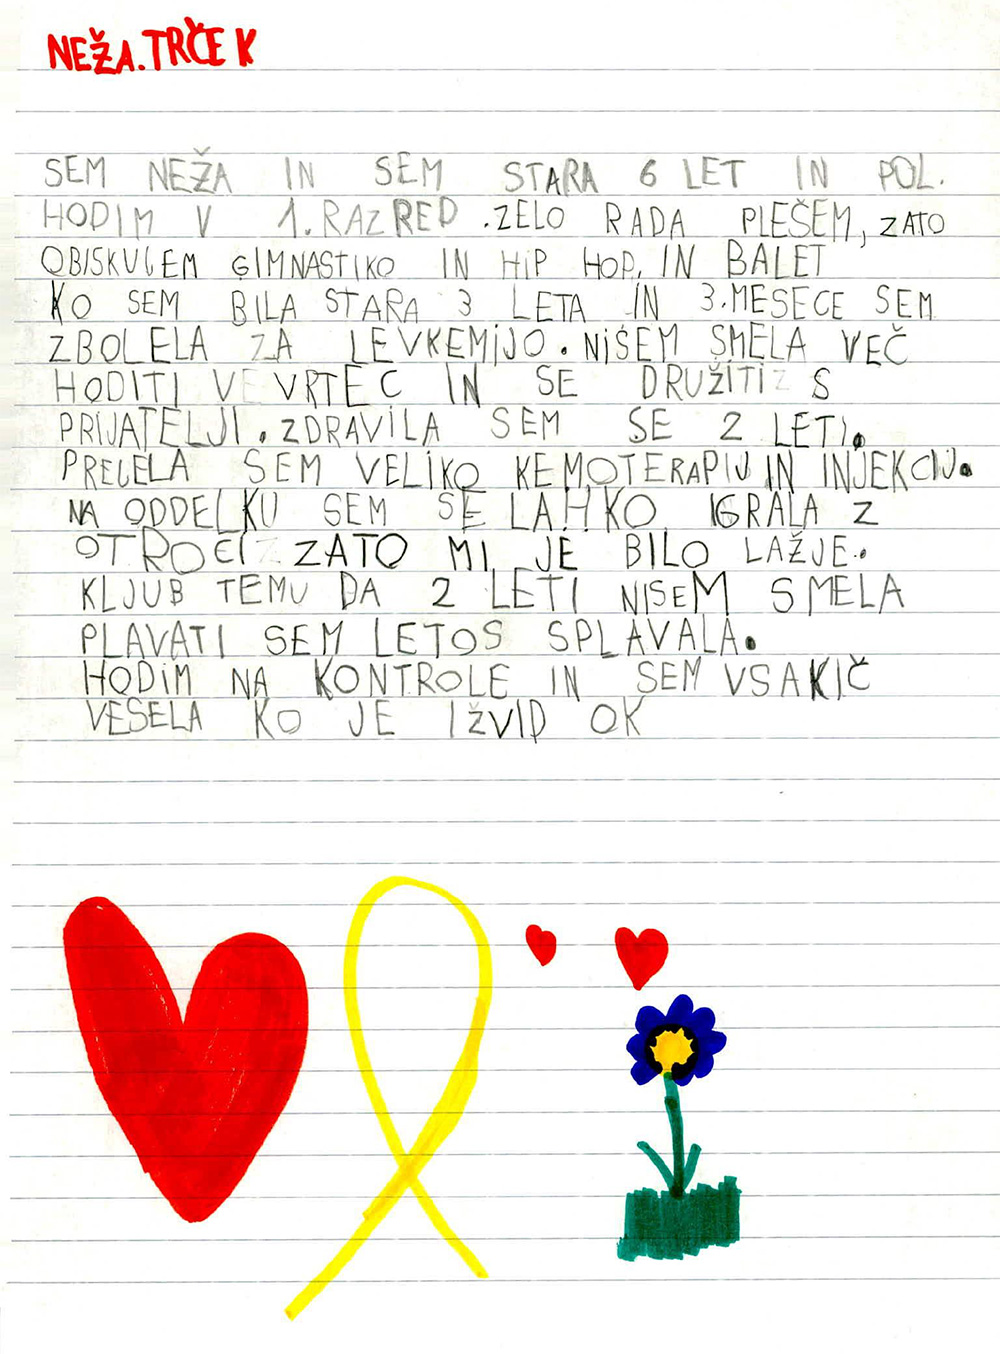 NEŽA.TRČEK
SEM NEŽA IN SEM STARA 6 LET IN POL.
HODIM V 1.RAZRED .ZELO RADA PLEŠEM, ZATO
OBISKUJEM GIMNASTIKO IN HIP HOP, IN BALET
KO SEM BILA STARA 3 LETA IN 3.MESECE SEM
ZBOLELA ZA LEVKEMIJO. NISEM SMELA VEČ
HODITI V VRTEC IN SE DRUŽITI S
PRIJATELJI. ZDRAVILA SEM SE 2 LETI.
PREJELA SEM VELIKO KEMOTERAPIJ IN INJEKCIJ.
NA ODDELKU SEM SE LAHKO IGRALA Z
OTROCI ZATO MI JE BILO LAŽJE.
KLJUB TEMU DA 2 LETI NISEM SMELA
PLAVATI SEM LETOS SPLAVALA.
HODIM NA KONTROLE IN SEM VSAKIČ
VESELA KO JE IŽVID OK